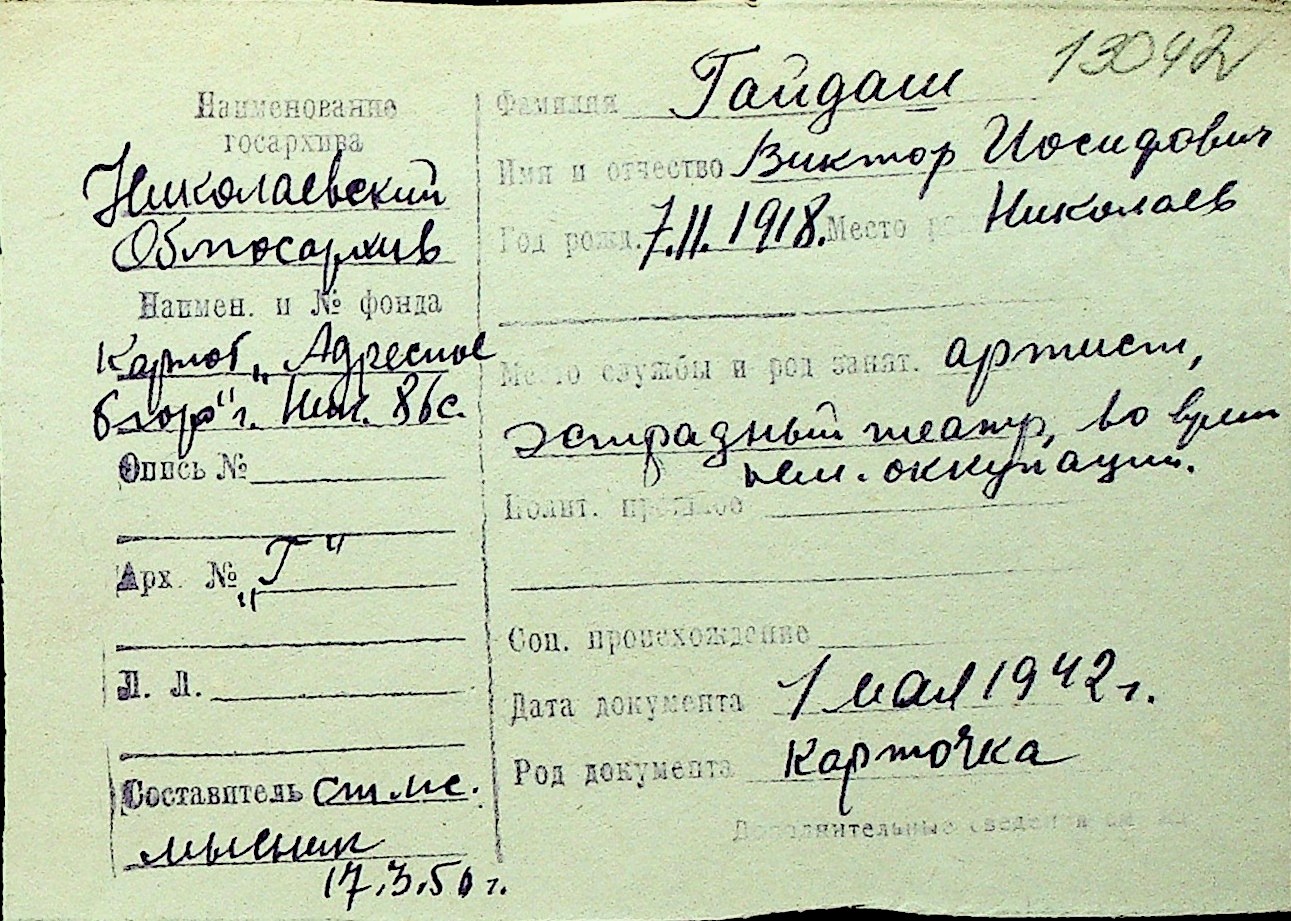 13042
Наименование
госархива
Николаевский
Облгосархив
Наимен. и № фонда
Картот. „Адресное
бюро" г. Ник. 86с.
Опись №
Арх. № „Г"
Л. Л.
Составитель ст. мс.
17.3.50 г.
Фамилия Гайдаш
Имя и отчество Виктор Иосифович
Год рожд. 7.II.1918. Место Николаев
Место службы и род занят. артист,
эстрадный театр, во время
нем. оккупации.
Полит. прошлое
Соц. происхождение
Дата документа 1 мая 1942 г.
Род документа карточка
Дополнительные сведения см. на